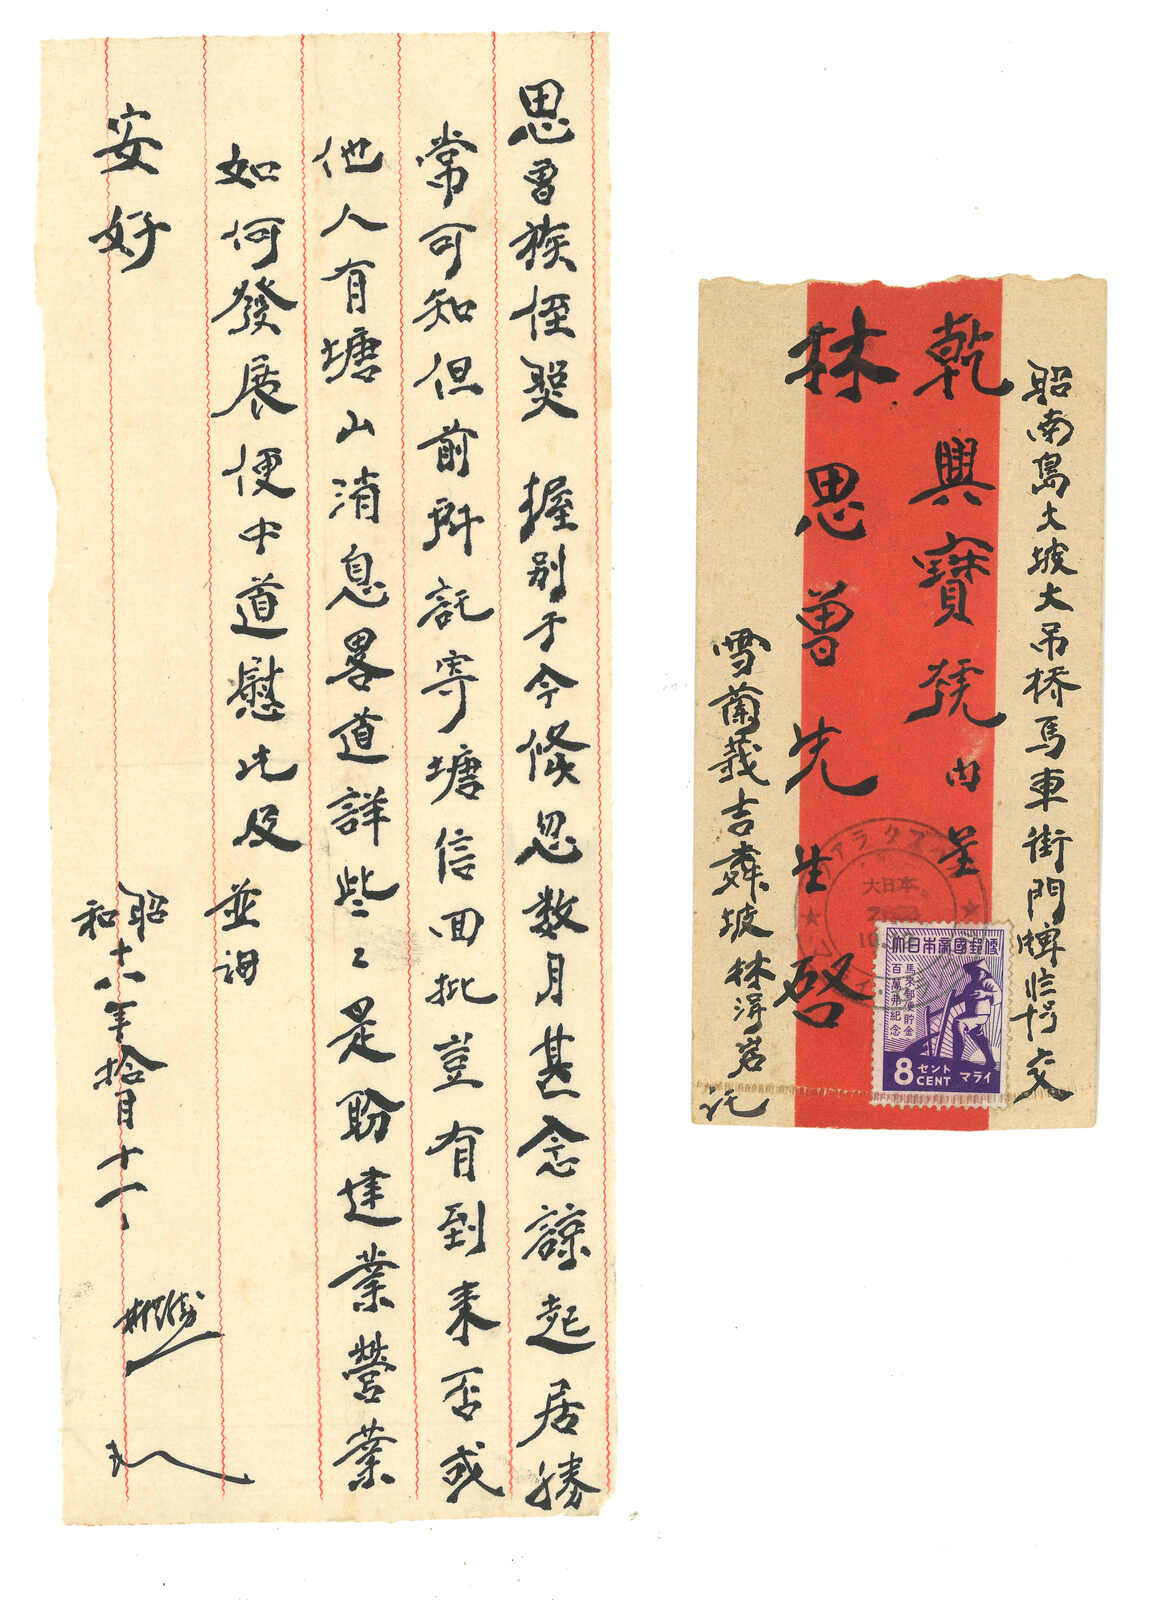 思曾族侄契 握别于今倏忽数月甚念諒起居勝
常可知但前所託寄塘信回批豈有到来否或
他人有塘山消息畧道詳些々是盼建業營業
如何發展便中道慰此及 並詢
安好
昭和十八年拾月十一
昭南島大坡大吊橋馬車街門牌 交
乾興寶號内呈
林思曾先生啓
雪蘭莪吉舞坡林 岩託
大日本
10.
大日本帝國郵便
馬來郵便貯金
百萬弗紀念
8 セント CENT マライ